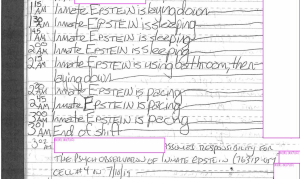 115 AM Inmate EPSTEIN is laying down
130 AM Inmate EPSTEIN is sleeping
145 AM Inmate EPSTEIN is sleeping
200 AM Inmate EPSTEIN is sleeping
215 AM Inmate EPSTEIN is using bathroom, then
laying down
230 AM Inmate EPSTEIN is pacing
245 AM Inmate EPSTEIN is pacing
300 AM Inmate EPSTEIN is pacing
3 AM End of shift
ASSUMES RESPONSIBILITY FOR
THE PSYCH OBSERVATION OF INMATE EPSTEIN
CELL #4 N 7/10/19